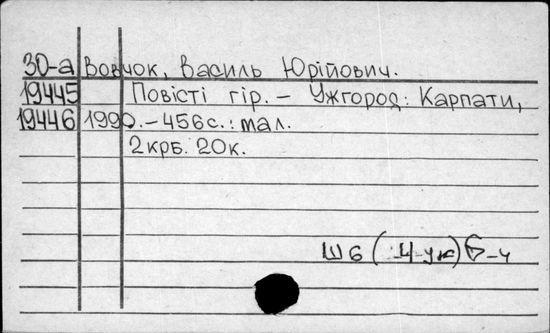 30-а Вовчок, Василь Юрійович.
19445 Повісті гір. – Ужгород: Карпати,
19446 1990. – 456с.: мал.
2крб. 20к.
Ш6 (4 ук) 6-ч